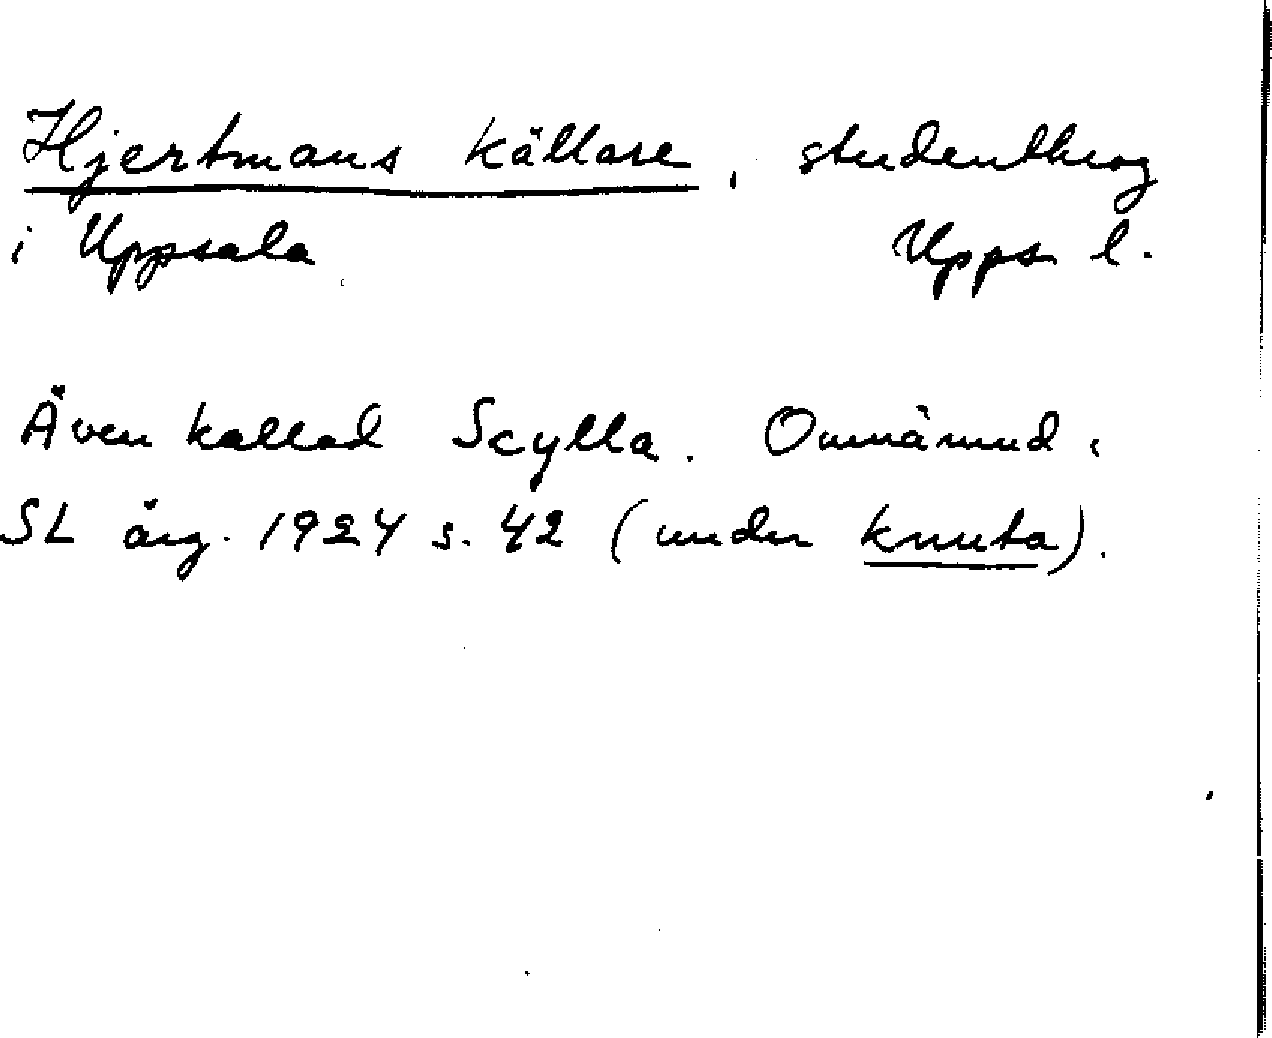 Hjertmans källare, studentkrog
i Uppsala Upps l.
Även kallad Scylla. Omnämnd i
SL årg. 1924 s. 42 (under knuta).